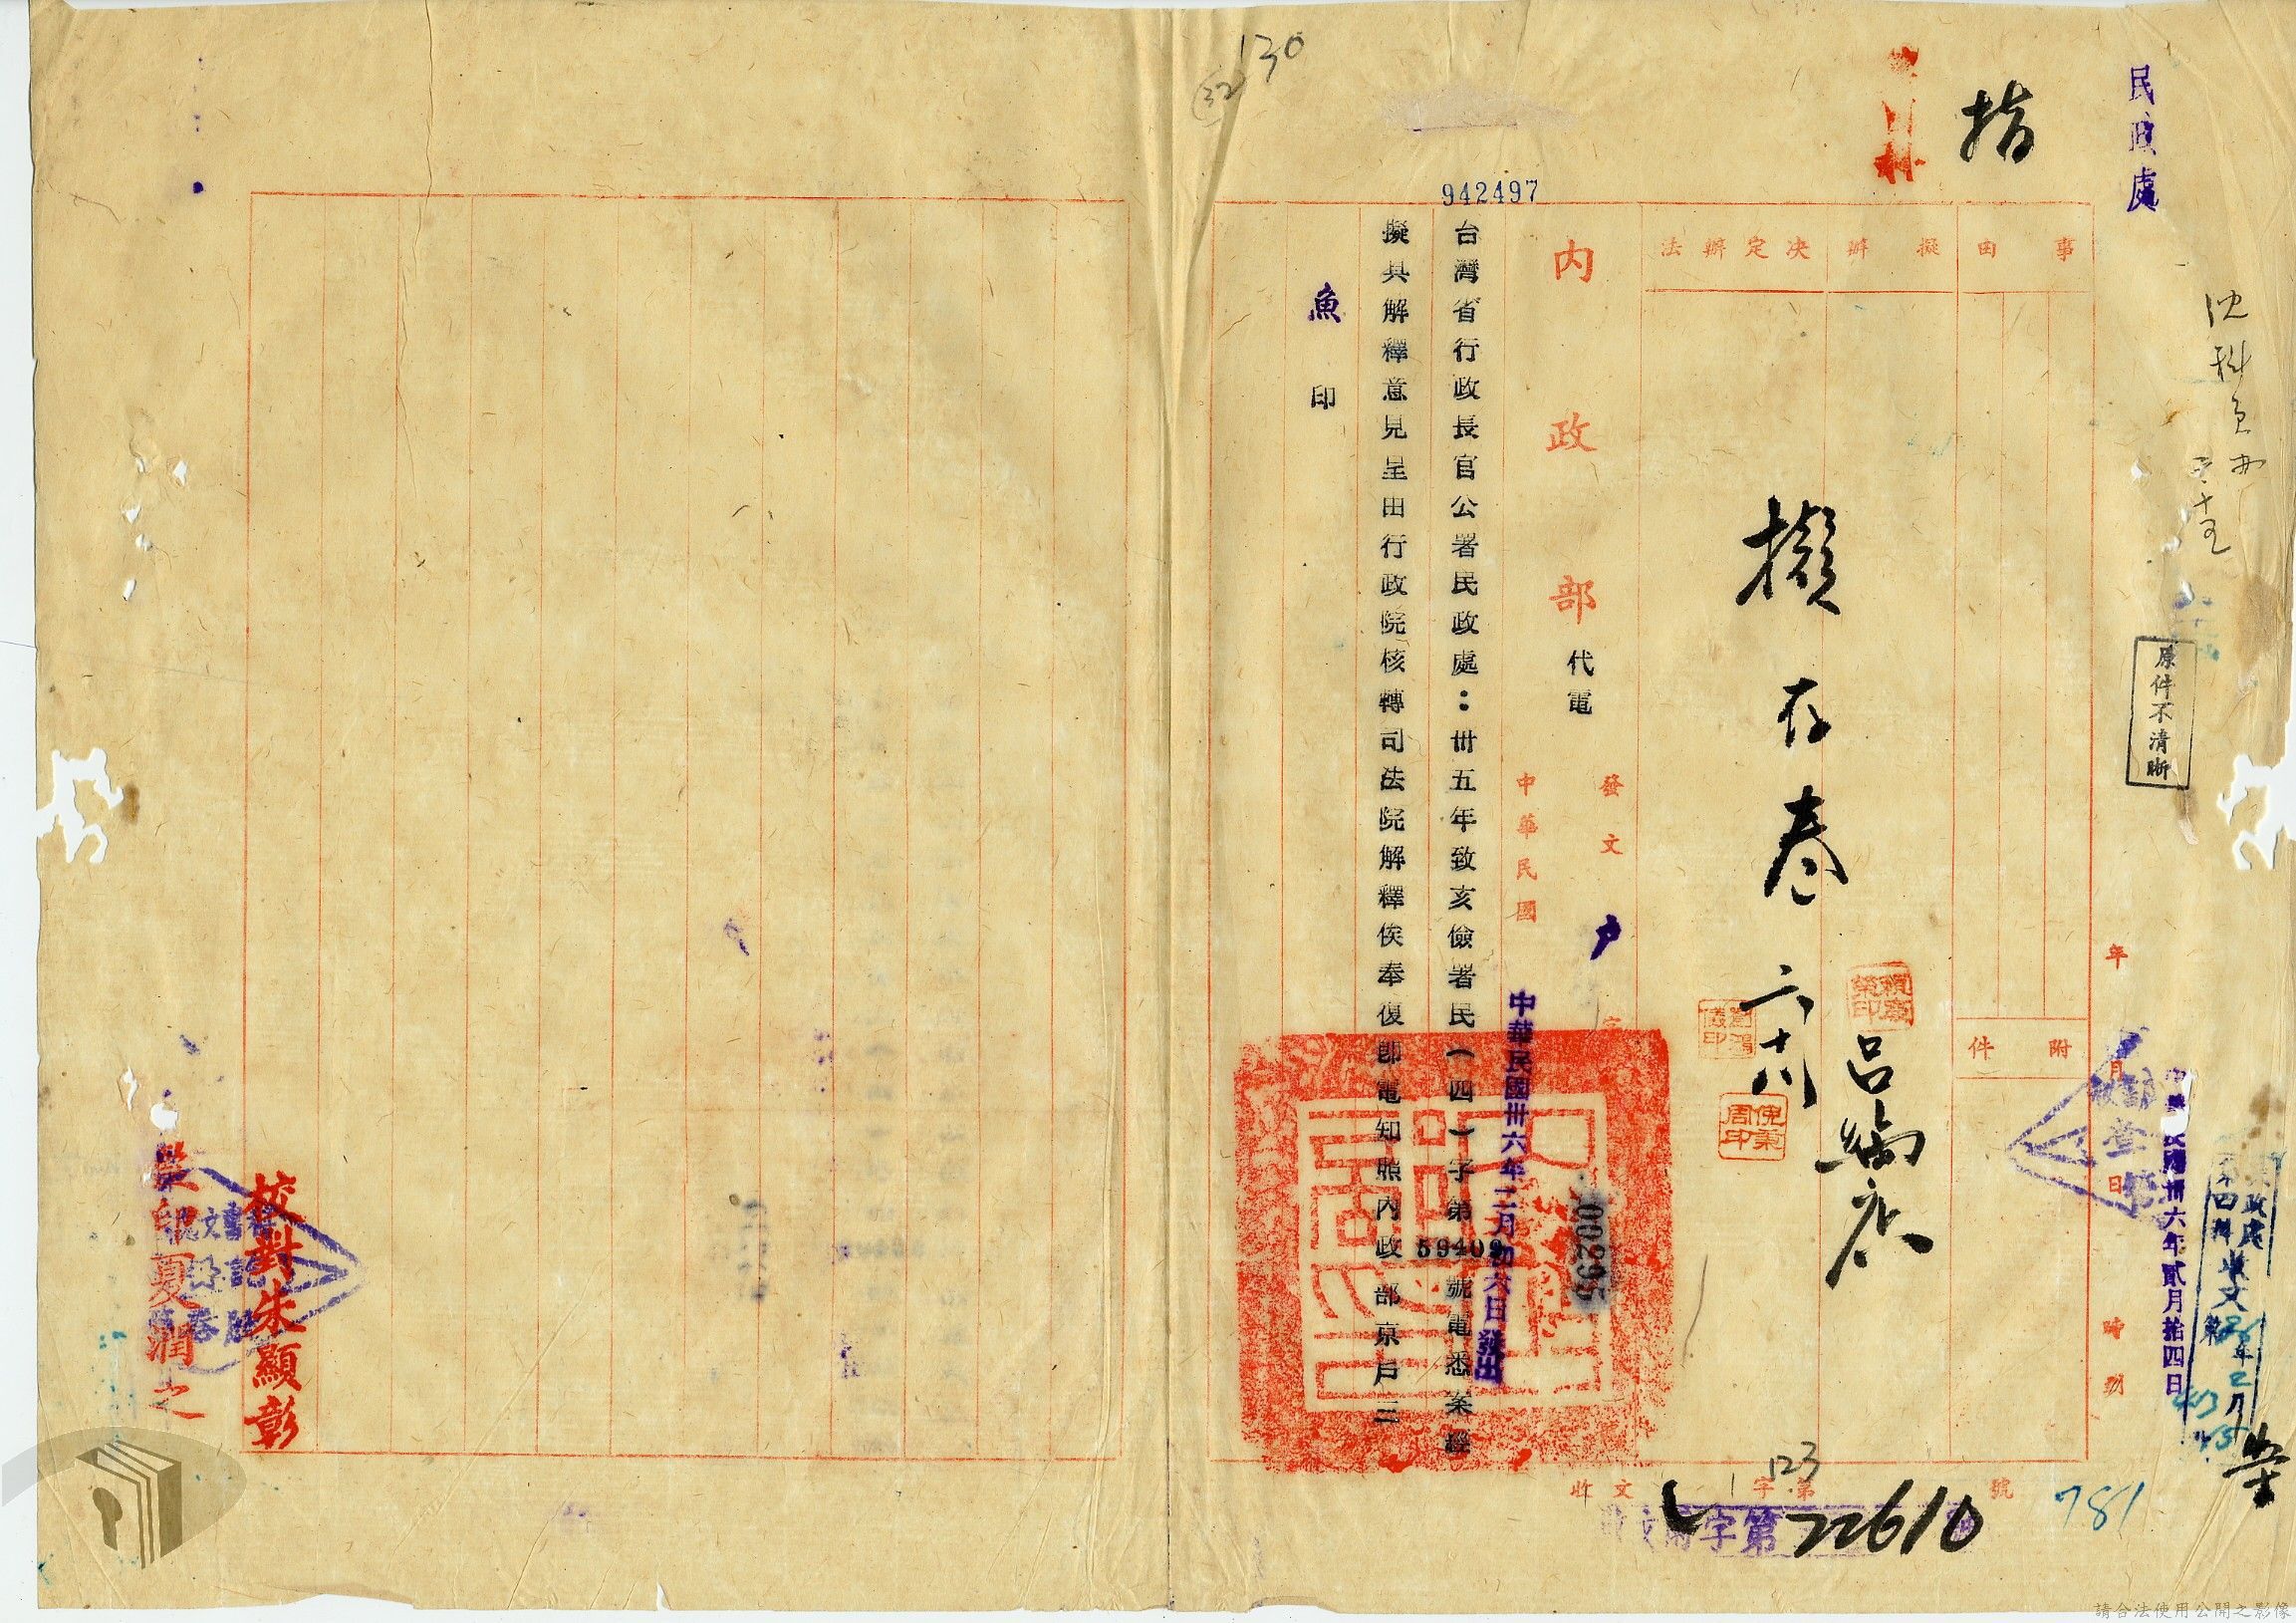 民政處
指
沈科員
原件不清晰
中華民國卅六年貳月拾四日
年 月 日 時 到
事由
擬辦
決定辦法
附件
擬存卷 六、十八
呂締彥
內政部代電
發文 戶 字
002995
中華民國
中華民國卅六年二月初六日發出
942497
台灣省行政長官公署民政處：卅五年致亥儉署民（四）字第59409號電悉案經
擬具解釋意見呈由行政院核轉司法院解釋俟奉復卽電知照內政部京戶三
魚印
130
32
收文 字第 號
123
22610
781
校對朱顯彰
監印夏潤之
請合法使用公開之影像